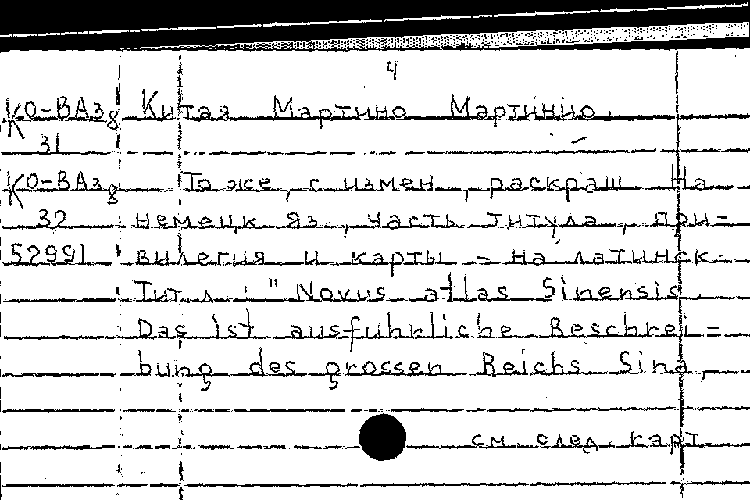 4
КО-ВАз8 Китая Мартино Мартинио.
К 31
КО-ВАз8 То же, с измен., раскраш. На
К 32 немецк. яз., часть титула, при-
52991 вилегия и карты - на латинск.
Тит. л.: "Novus atlas Sinensis.
Das ist ausfuhrliche Beschrei-
bung des grossen Reichs Sina,
см. след. карт.